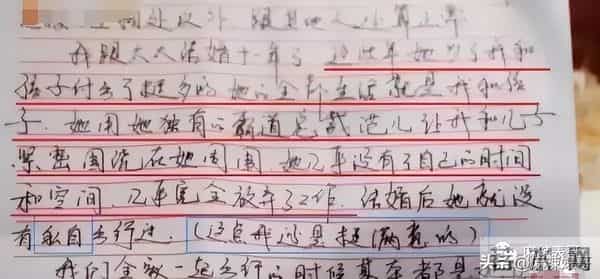 我跟太太结婚十一年了 这些年她为了我和
孩子付出了挺多的 她的全部生活就是我和孩
子. 她用她独有的霸道总裁范儿让我和儿子
紧密围绕在她周围 她几乎没有了自己的时间
和空间. 几乎完全放弃了工作. 结婚后她就没
有私自出行过. (这点我还是挺满意的)
我们全家一起出行的时候基本都是
头条